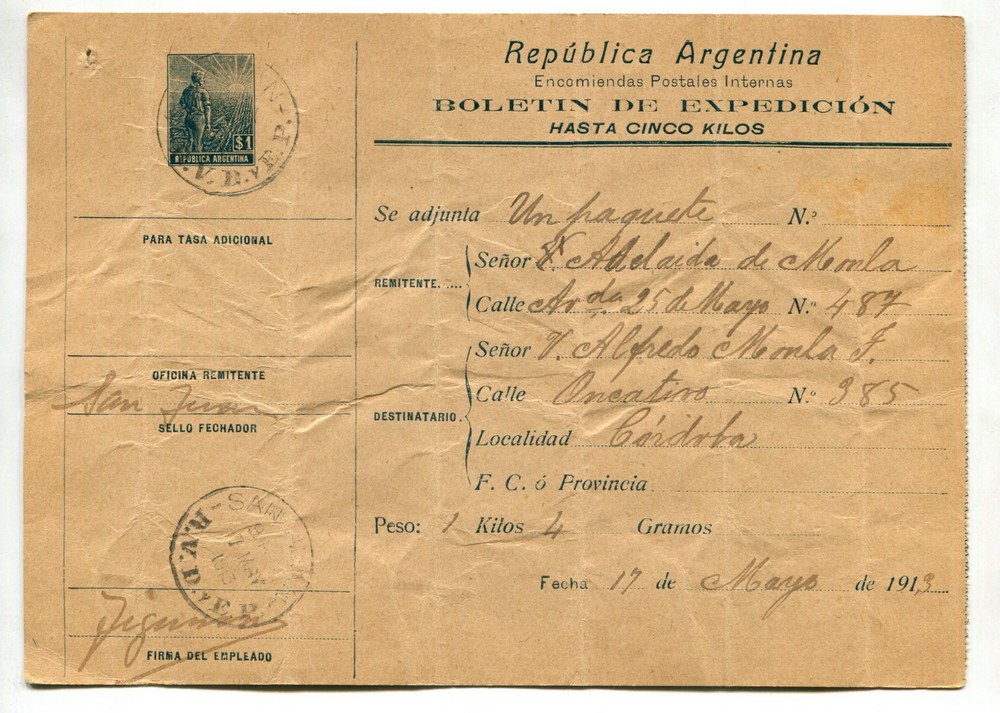 República Argentina
Encomiendas Postales Internas
BOLETIN DE EXPEDICIÓN
HASTA CINCO KILOS
$1
REPÚBLICA ARGENTINA
V. D. Y E. P.
PARA TASA ADICIONAL
OFICINA REMITENTE
San Juan
SELLO FECHADOR
SAN JUAN
17 MAY
1913
R.V.D. Y E.P.
FIRMA DEL EMPLEADO
Se adjunta Un paquete N.º
REMITENTE.....
Señor V. Adelaida de Monla
Calle Avda 25 de Mayo N.º 487
DESTINATARIO.
Señor V. Alfredo Monla F.
Calle Oncativo N.º 385
Localidad Córdoba
F. C. ó Provincia
Peso: 1 Kilos 4 Gramos
Fecha 17 de Mayo de 1913